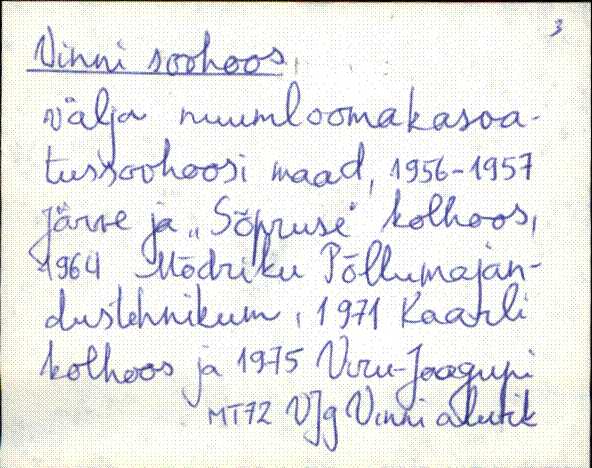 3
Vinni sovhoos,
välja nuumloomakasva-
tussovhoosi maad, 1956-1957
Järve ja „Sõpruse" kolhoos,
1964 Mõdriku Põllumajan-
dustehnikum, 1971 Kaarli
kolhoos ja 1975 Viru-Jaagupi
MT72 VJg Vinni alevik